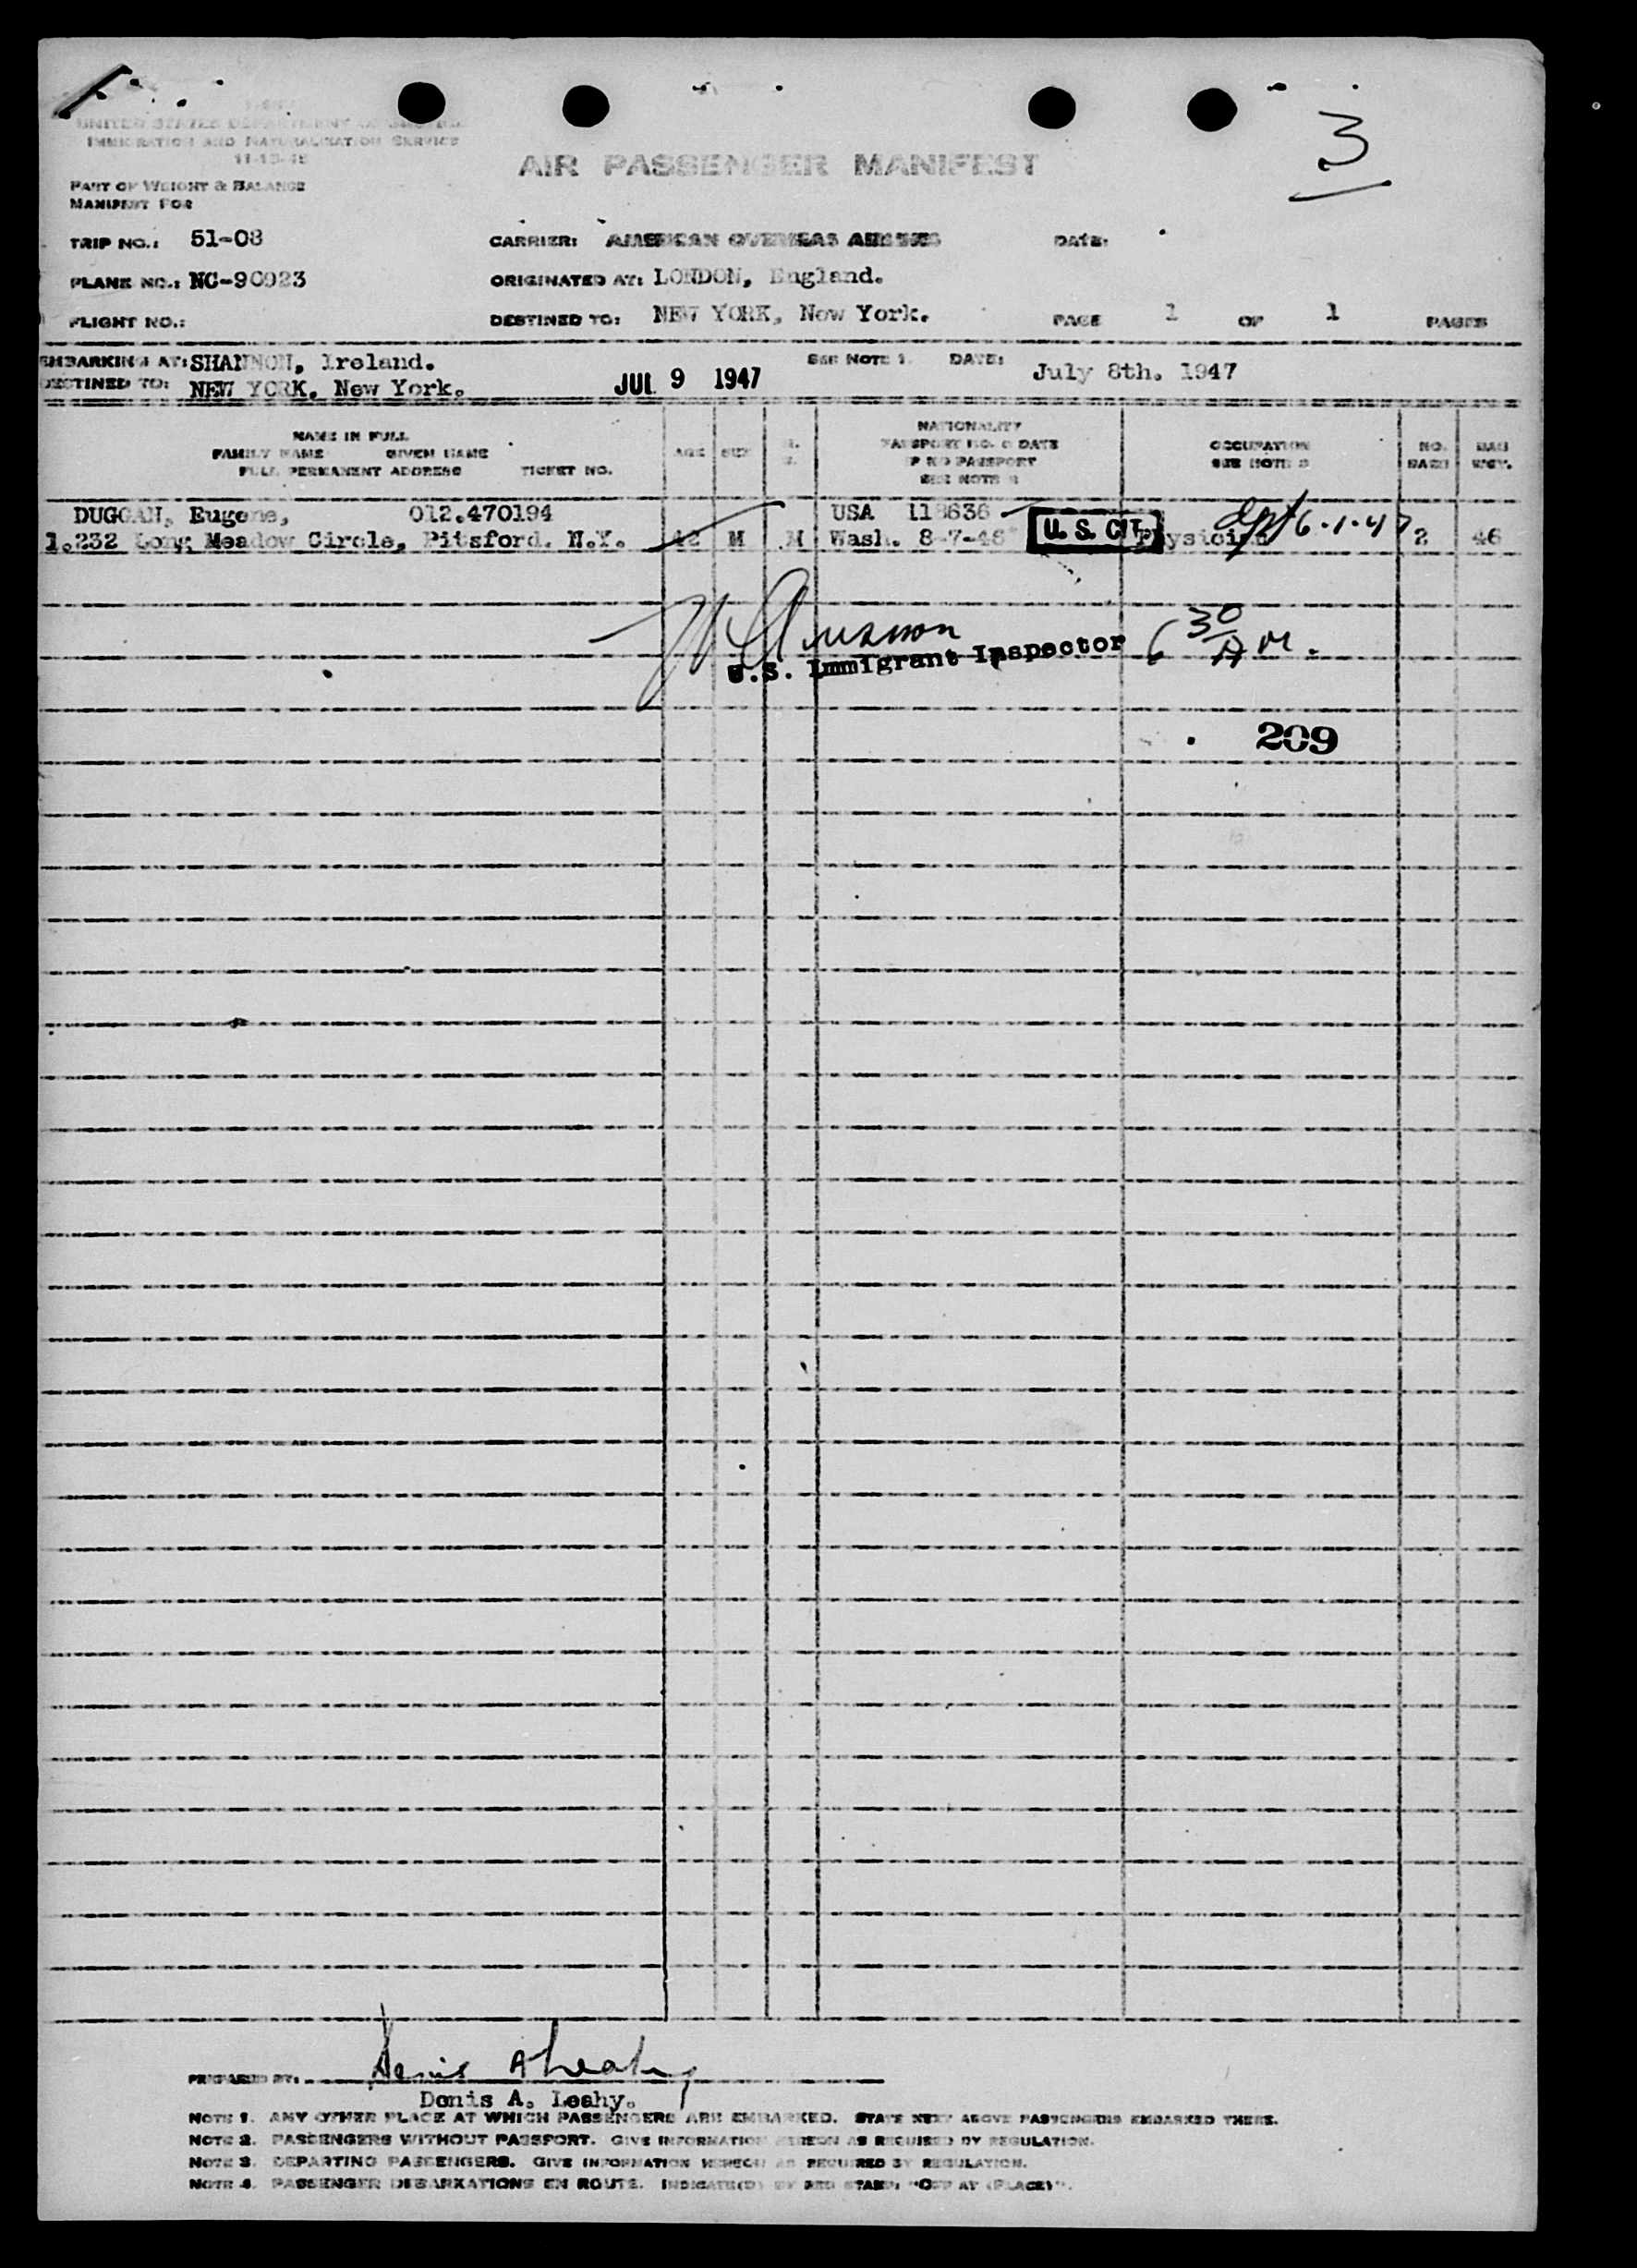 3
UNITED STATES DEPARTMENT OF JUSTICE
IMMIGRATION AND NATURALIZATION SERVICE
AIR PASSENGER MANIFEST
PART OF WEIGHT & BALANCE
MANIFEST FOR
TRIP NO.: 51-08 CARRIER: AMERICAN OVERSEAS AIRLINES DATE:
PLANE NO.: NC-90923 ORIGINATED AT: LONDON, England.
FLIGHT NO.: DESTINED TO: NEW YORK, New York. PAGE 1 OF 1 PAGES
EMBARKING AT: SHANNON, Ireland. SEE NOTE 1. DATE: July 8th. 1947
DESTINED TO: NEW YORK, New York. JUL 9 1947
NAME IN FULL
FAMILY NAME GIVEN NAME
FULL PERMANENT ADDRESS TICKET NO.
AGE SEX
NATIONALITY
PASSPORT NO. & DATE
IF NO PASSPORT
SEE NOTE
OCCUPATION
SEE NOTE 3
NO. BAGS
BAG WGT.
DUGGAN, Eugene, 012.470194 USA 118636
1.232 Long Meadow Circle, Pitsford. N.Y. M M Wash. 8-7-46 U. S. CIT. Physician 6-1-47 2 46
U.S. Immigrant Inspector 6 30 A M.
209
PREPARED BY: Denis A Leahy
Denis A. Leahy.
NOTE 1. ANY OTHER PLACE AT WHICH PASSENGERS ARE EMBARKED. STATE NEXT ABOVE PASSENGERS EMBARKED THERE.
NOTE 2. PASSENGERS WITHOUT PASSPORT. GIVE INFORMATION HEREON AS REQUIRED BY REGULATION.
NOTE 3. DEPARTING PASSENGERS. GIVE INFORMATION HEREON AS REQUIRED BY REGULATION.
NOTE 4. PASSENGER DEBARKATIONS EN ROUTE. INDICATE(D) BY RED STAMP: "OFF AT (PLACE)".